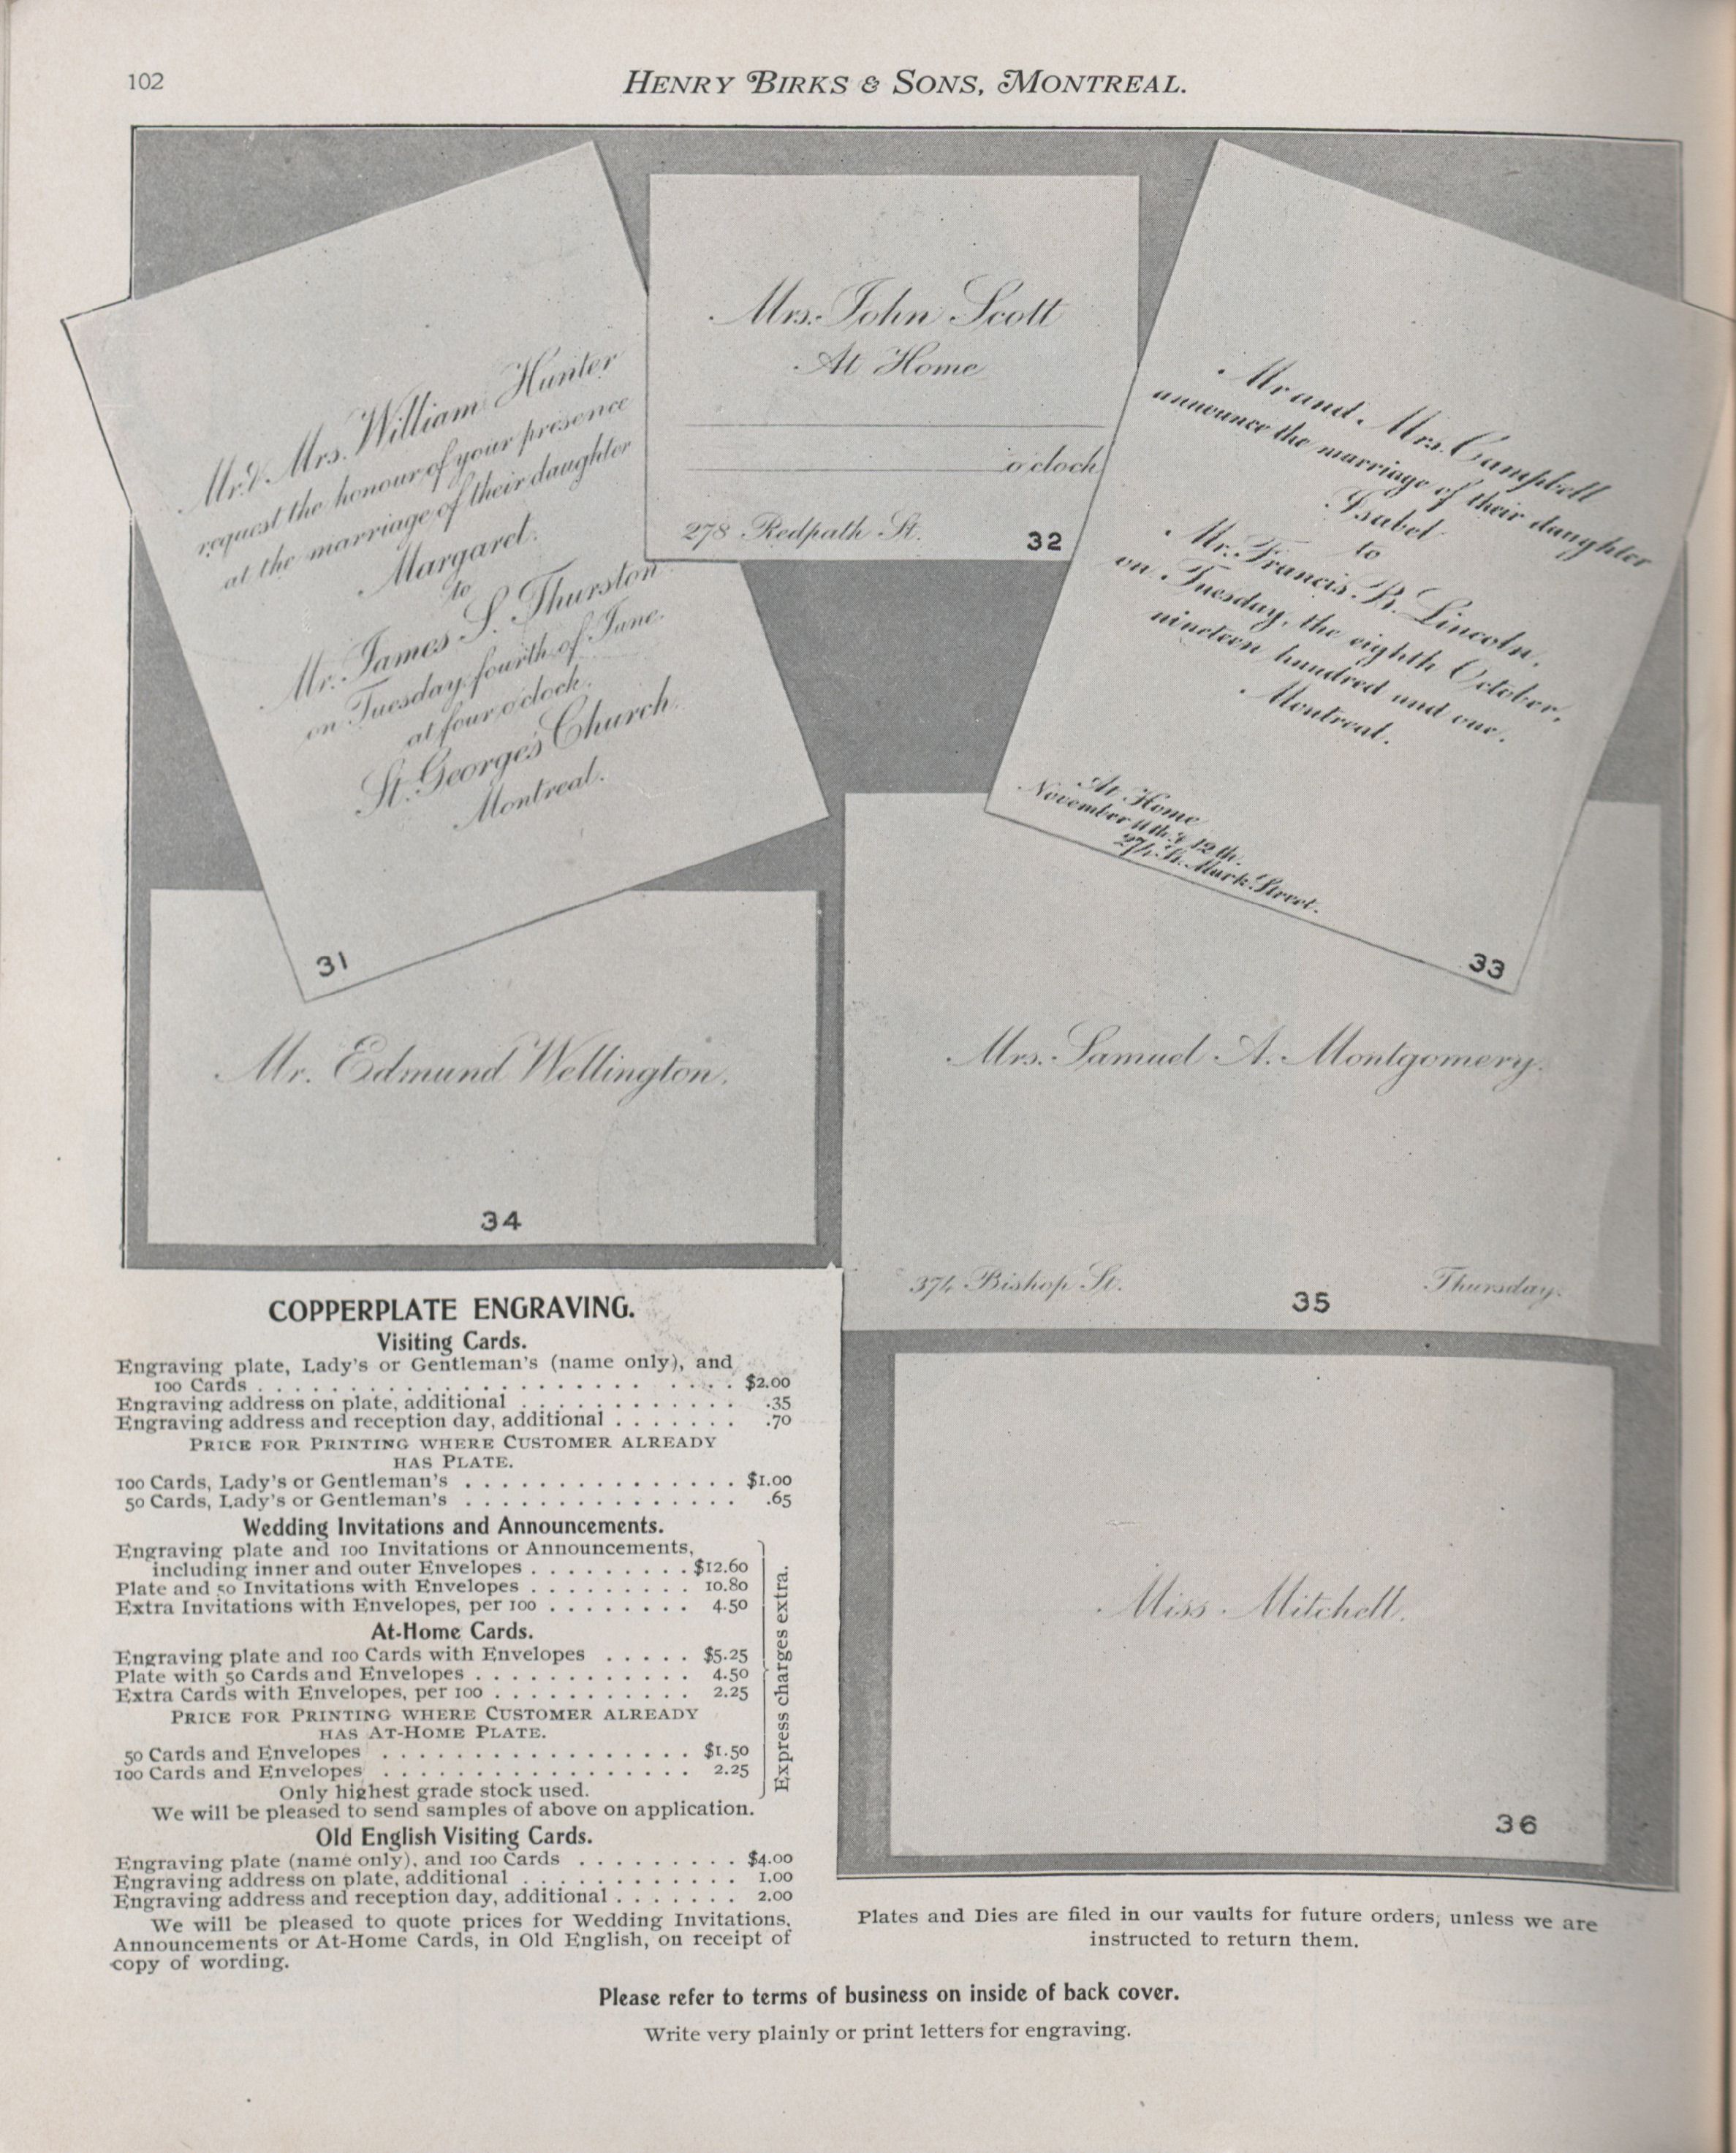 102
HENRY BIRKS & SONS, MONTREAL.
Mr. & Mrs. William Hunter
request the honour of your presence
at the marriage of their daughter
Margaret
to
Mr. James S. Thurston
on Tuesday, fourth of June,
at four o'clock.
St. George's Church,
Montreal.
31
Mrs. John Scott
At Home
o'clock
278 Redpath St.
32
Mr and Mrs. Campbell
announce the marriage of their daughter
Isabel
to
Mr. Francis B. Lincoln,
on Tuesday, the eighth October,
nineteen hundred and one.
Montreal.
At Home
November 11th & 12th.
274 St. Mark Street.
33
Mr. Edmund Wellington.
34
Mrs. Samuel A. Montgomery.
374 Bishop St.
Thursday.
35
Miss Mitchell.
36
COPPERPLATE ENGRAVING.
Visiting Cards.
Engraving plate, Lady's or Gentleman's (name only), and
100 Cards . . . . . . . . . . . . . . . . . . . . $2.00
Engraving address on plate, additional . . . . . . . . . . . . .35
Engraving address and reception day, additional . . . . . . . .70
PRICE FOR PRINTING WHERE CUSTOMER ALREADY
HAS PLATE.
100 Cards, Lady's or Gentleman's . . . . . . . . . . . . . . . $1.00
50 Cards, Lady's or Gentleman's . . . . . . . . . . . . . . . .65
Wedding Invitations and Announcements.
Engraving plate and 100 Invitations or Announcements,
including inner and outer Envelopes . . . . . . . . . $12.60
Plate and 50 Invitations with Envelopes . . . . . . . . . 10.80
Extra Invitations with Envelopes, per 100 . . . . . . . . 4.50
At-Home Cards.
Engraving plate and 100 Cards with Envelopes . . . . . $5.25
Plate with 50 Cards and Envelopes . . . . . . . . . . . . 4.50
Extra Cards with Envelopes, per 100 . . . . . . . . . . . 2.25
PRICE FOR PRINTING WHERE CUSTOMER ALREADY
HAS AT-HOME PLATE.
50 Cards and Envelopes . . . . . . . . . . . . . . . . . $1.50
100 Cards and Envelopes . . . . . . . . . . . . . . . . . 2.25
Express charges extra.
Only highest grade stock used.
We will be pleased to send samples of above on application.
Old English Visiting Cards.
Engraving plate (name only), and 100 Cards . . . . . . . . . $4.00
Engraving address on plate, additional . . . . . . . . . . . . 1.00
Engraving address and reception day, additional . . . . . . . 2.00
We will be pleased to quote prices for Wedding Invitations,
Announcements or At-Home Cards, in Old English, on receipt of
copy of wording.
Plates and Dies are filed in our vaults for future orders, unless we are
instructed to return them.
Please refer to terms of business on inside of back cover.
Write very plainly or print letters for engraving.